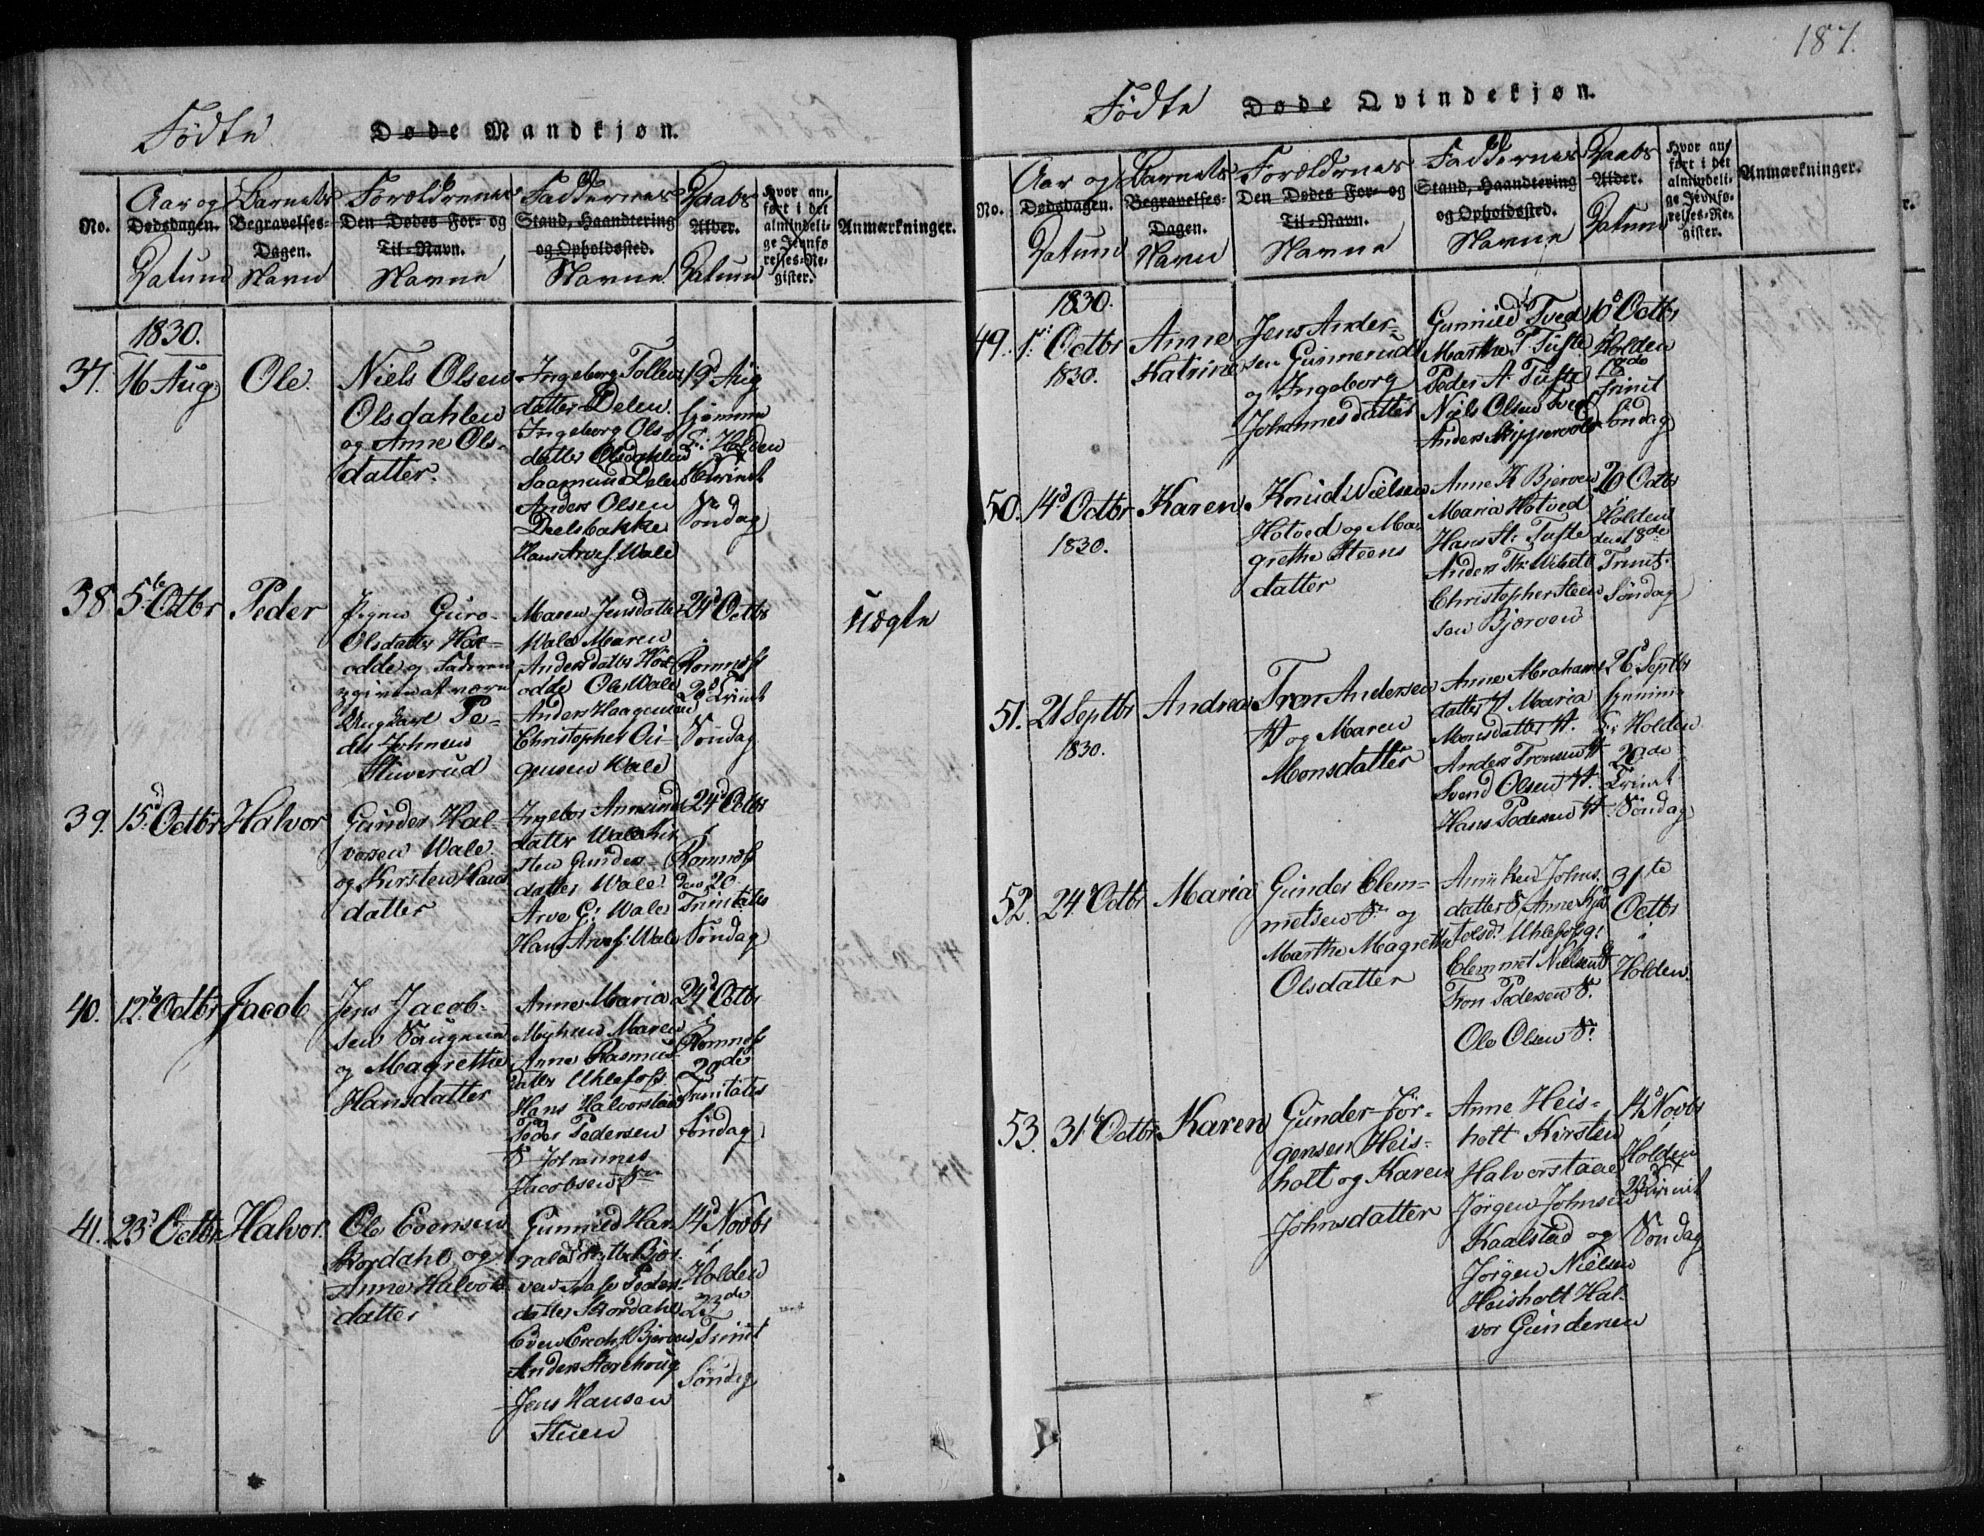 Fødte
Døde Mandkjøn.
No.
Aar og
Dødsdagen.
Datum
Barnets
Begravelses-
Dagen.
Navn
Forældrenes
Den Dødes For- og
Til-Navn.
Navne
Faddernes
Stand, Haandtering
og Opholdssted.
Navne
Daabs
Alder.
Datum
Hvor an-
ført i det
almindeli-
ge Jevnfø-
relses-Re-
gister.
Anmærkninger.
1830.
37.
16 Aug
Ole.
Niels Olsen
Olsdahlen
og Anne Ols-
datter.
Ingeborg Tollevs
datter Delen.
Ingeborg Ols-
datter Olsdahlen
Saamund Delen
Anders Olsen
Deelsbakke
Hans Arves. Wale
19d Aug
hjemme
d: Holden
Trinit
Søndag
38
5te Octbr
Peder
Pigen Guro
Olsdatter Hox-
odde og Faderen
angiven at være
Ungkarl Pe-
der Johnsen
Stuverud
Maren Jensdatter
Wale Maren
Andersdatter Hox-
odde Ole Wale
Anders Haagensen
Christopher
gensen Wale
24d Octbr
i
Romnæs
20d Trinit
Søndag
uægte
39.
15d Octbr
Halvor
Gunder Hal-
vorsen Wale.
og Kirsten Hans
datter
Ingebor Anmund
datter Wale Kir
sten Gunders-
datter Wale.
Arve G: Wale
Hans Arves: Wale
24d Octbr
i
Romnæs
den 20
Trinitates
Søndag
40.
12te Octbr
Jacob
Jens Jacob-
sen
og Magrethe
Hansdatter
Anne Maria
Myhren Maren
Anne Rasmus-
datter Uhlefoss.
Hans Halvorstad
Peder Pedersen
Johannes
Jacobsen
24d Octbr
i
Romnæs
20de
Trinitates
Søndag
41.
23d Octbr
Halvor.
Ole Evensen
Stordahl og
Anne Halvors
datter
Gunnild Har
Bjer-
ven Aase Peders-
datter Stordahl
Even Erichs. Bjerven
Anders Storehoug
Jens Hansen
Stuen
14d Novbr
i
Holden
23de
Trinit
Søndag
187.
Fødte
Døde Qvindekjøn.
No.
Aar og
Dødsdagen.
Datum
Barnets
Begravelses-
Dagen.
Navn
Forældrenes
Den Dødes For- og
Til-Navn.
Navne
Faddernes
Stand, Haandtering
og Opholdssted.
Navne
Daabs
Alder.
Datum
Hvor an-
ført i det
almindeli-
ge Jevnfø-
relses-Re-
gister.
Anmærkninger.
1830.
49.
1ste Octbr
1830.
Anne
Katrine
Jens Ander-
sen Gunnerud
og Ingeborg
Johannesdatter
Gunnild Tved
Marthe T Tufte
Peder A. Tufte
Niels Olsen Tved
Anders Skippervold
10d Octbr
Holden
18de
Trinit
Søndag
50.
14d Octbr
1830.
Karen
Knud Nielsen
Hotved og Ma-
grethe Steens
datter
Anne K Bjerven
Maria Hotved
Hans St: Tufte
Anders
Christopher Steen
sen Bjerven
20 Octbr
Holden
Trinit-
Søndag
51.
21 Septbr
1830.
Andrea
Tron Andersen
H og Maren
Monsdatter
Anne Abrahams
datter H Maria
Monsdatter H.
Anders Tronsen H
Svend Olsen H.
Hans Pedersen H
26d Septbr
hjemme
d: Holden
20de
Trinit
Søndag
52.
24d Octbr
Maria
Gunder Clem-
metsen og
Marthe Magrethe
Olsdatter
Anniken Johns.
datter Anne
Uhlefoss g:
Clemmet Nielsen
Tron Pedersen
Ole Olsen
31te
Octbr
i
Holden
53.
31te Octbr
Karen
Gunder Jør-
gensen Heis-
holt og Karen
Johnsdatter
Anne Heis-
holt Kirsten
Halvorstad
Jørgen Johnsen
Kaalstad og
Jørgen Nielsen
Heisholt Hal-
vor Gundersen
14d Novbr
i
Holden
23d Trinit
Søndag